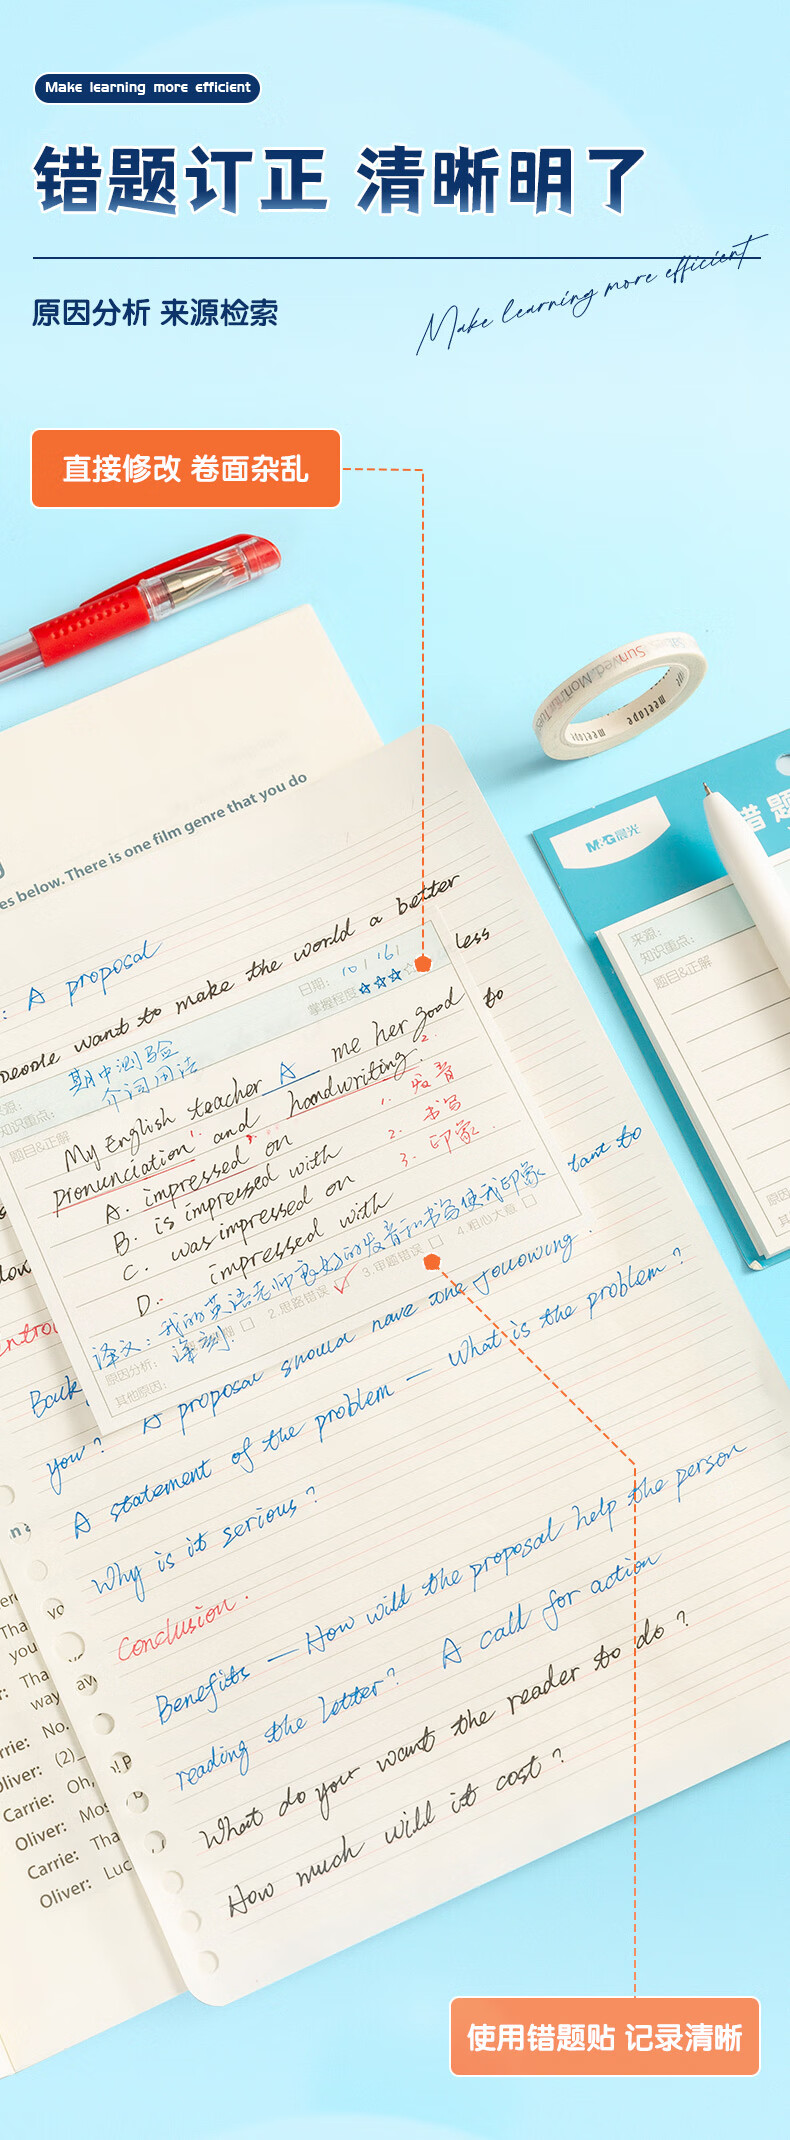 Make learning more efficient
错题订正 清晰明了
Make learning more efficient
原因分析 来源检索
直接修改 卷面杂乱
es below. There is one film genre that you do
: A proposal
people want to make the world a better
less
to
日期: 10 / 16 /
掌握程度
来源: 期中测验
知识重点: 介词用法
题目&正解
My English teacher A me her good
pronunciation and handwriting.
A. impressed on
B. is impressed with
C. was impressed on
D. impressed with
1. 发音
2. 书写
3. 印象.
译文: 我的英语老师良好的发音和书写使我印象
深刻!
原因分析:
2.思路错误
3.审题错误
4.粗心大意
其他原因:
tant to
Back
A proposal should have the following.
you?
A statement of the problem — What is the problem?
Why is it serious?
Conclusion.
Benefits — How will the proposal help the person
reading the letter? A call for action
What do your want the reader to do?
How much will it cost?
Tha
you
Tha
way
No.
Oliver: (2)
Carrie: Oh,
Oliver: Mos
Carrie: Tha
Oliver: Luc
meetape
M&G晨光
错题
来源:
知识重点:
题目&正解
使用错题贴 记录清晰